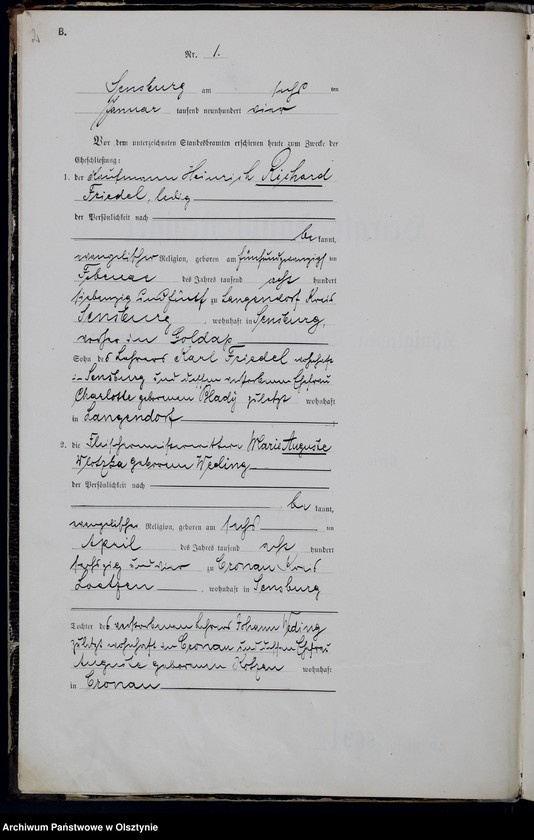 2
B.
Nr. 1.
Sensburg am sechs ten
Januar tausend neunhundert vier
Vor dem unterzeichneten Standesbeamten erschienen heute zum Zwecke der
Eheschließung:
1. der Kaufmann Heinrich Richard
Friedel, ledig
der Persönlichkeit nach
be kannt,
evangelischer Religion, geboren am fünfundzwanzigsten
Februar des Jahres tausend acht hundert
siebenzig und fünf zu Langendorf Kreis
Sensburg, wohnhaft in Sensburg,
vorher in Goldap
Sohn des Lehrers Karl Friedel wohnhaft
in Sensburg und dessen verstorbenen Ehefrau
Charlotte geborenen zuletzt wohnhaft
in Langendorf
2. die Fleischermeisterwitwe Marie Auguste
Wlotzka geborene Weding
der Persönlichkeit nach
be kannt,
evangelischer Religion, geboren am sechs ten
April des Jahres tausend acht hundert
sechszig und vier zu Cronau Kreis
Loetzen, wohnhaft in Sensburg
Tochter des verstorbenen Lehrers Johann Weding
zuletzt wohnhaft in Cronau und dessen Ehefrau
Auguste geborenen wohnhaft
in Cronau
Archiwum Państwowe w Olsztynie